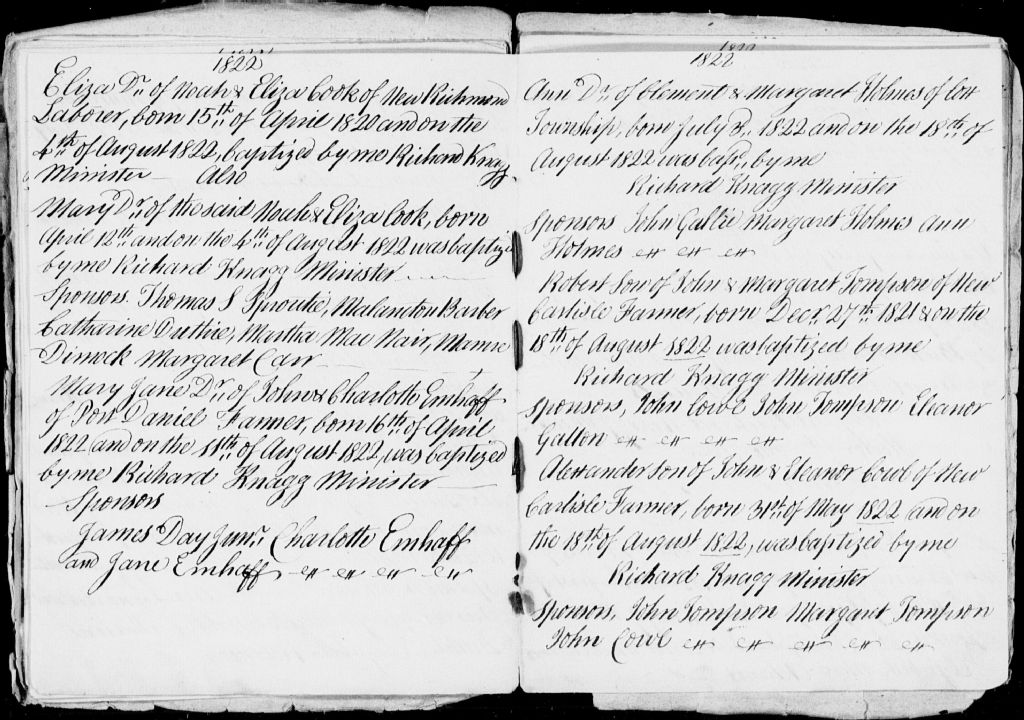 1822
Eliza Dr. of Noah & Eliza Cook of New Richmond
Laborer, born 15th of April 1820 and on the
4th of August 1822, baptized by me Richard Knagg
Minister — Also
Mary Dr. of the said Noah & Eliza Cook, born
April 12th and on the 4th of August 1822 was baptized
by me Richard Knagg Minister
Sponsors. Thomas S Sproule, Malanton Barber
Catharine Duthie, Martha Mac Nair, Mamre
Dimock Margaret Carr
Mary Jane Dr. of John & Charlotte Emhaff
of Port Daniel Farmer, born 16th of April
1822 and on the 11th of August 1822, was baptized
by me Richard Knagg Minister
Sponsors
James Day Junr. Charlotte Emhaff
and Jane Emhaff
1822
Ann Dr. of Clement & Margaret Holmes of Cox
Township, born July 1822 and on the 18th of
August 1822 was bapd. by me
Richard Knagg Minister
Sponsors John Gallie Margaret Holmes Ann
Holmes
Robert Son of John & Margaret Tompson of New
Carlisle Farmer, born Decr. 27th 1821 & on the
18th of August 1822 was baptized by me
Richard Knagg Minister
Sponsors, John Cowl John Tompson Eleanor
Galton
Alexander Son of John & Eleanor Cowl of New
Carlisle Farmer, born 31st of May 1822 and on
the 18th of August 1822, was baptized by me
Richard Knagg Minister
Sponsors, John Tompson Margaret Tompson
John Cowl